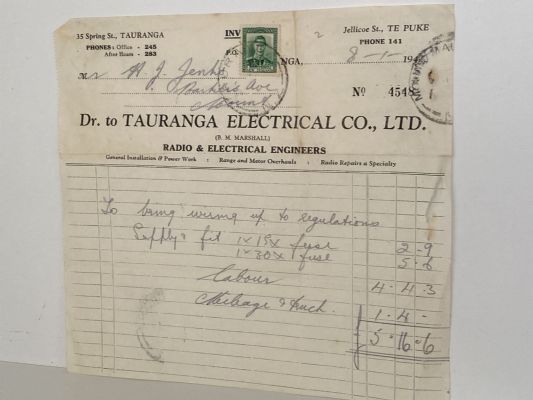 35 Spring St., TAURANGA
PHONES: Office - 245
After Hours - 283
INV
P.O.
NGA,
Jellicoe St., TE PUKE
PHONE 141
8 - 1 - 194
Mr W. J.
Ave
Mount
Nº 4548
Dr. to TAURANGA ELECTRICAL CO., LTD.
(B. M. MARSHALL)
RADIO & ELECTRICAL ENGINEERS
General Installation & Power Work : Range and Motor Overhauls : Radio Repairs a Specialty
To bring wiring up to regulations
Supply & fit 1 x 15x fuse 2 - 9
1 x 30x fuse 5 - 6
Labour 4 - 4 - 3
Mileage & Truck. 1 - 4 -
5 - 16 - 6